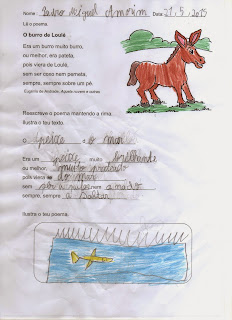 Nome: Pedro Miguel Amorim Data: 21.5.2015
Lê o poema.
O burro de Loulé
Era um burro muito burro,
ou melhor, era pateta,
pois viera de Loulé
sem ser coxo nem perneta,
sempre, sempre sobre um pé.
Eugénio de Andrade, Aquela nuvem e outras
Reescreve o poema mantendo a rima.
Ilustra o teu texto.
O peixe e o mar
Era um peixe muito brilhante,
ou melhor, muito prateado
pois viera do mar
sem ser nem
sempre, sempre a saltar
Ilustra o teu poema.